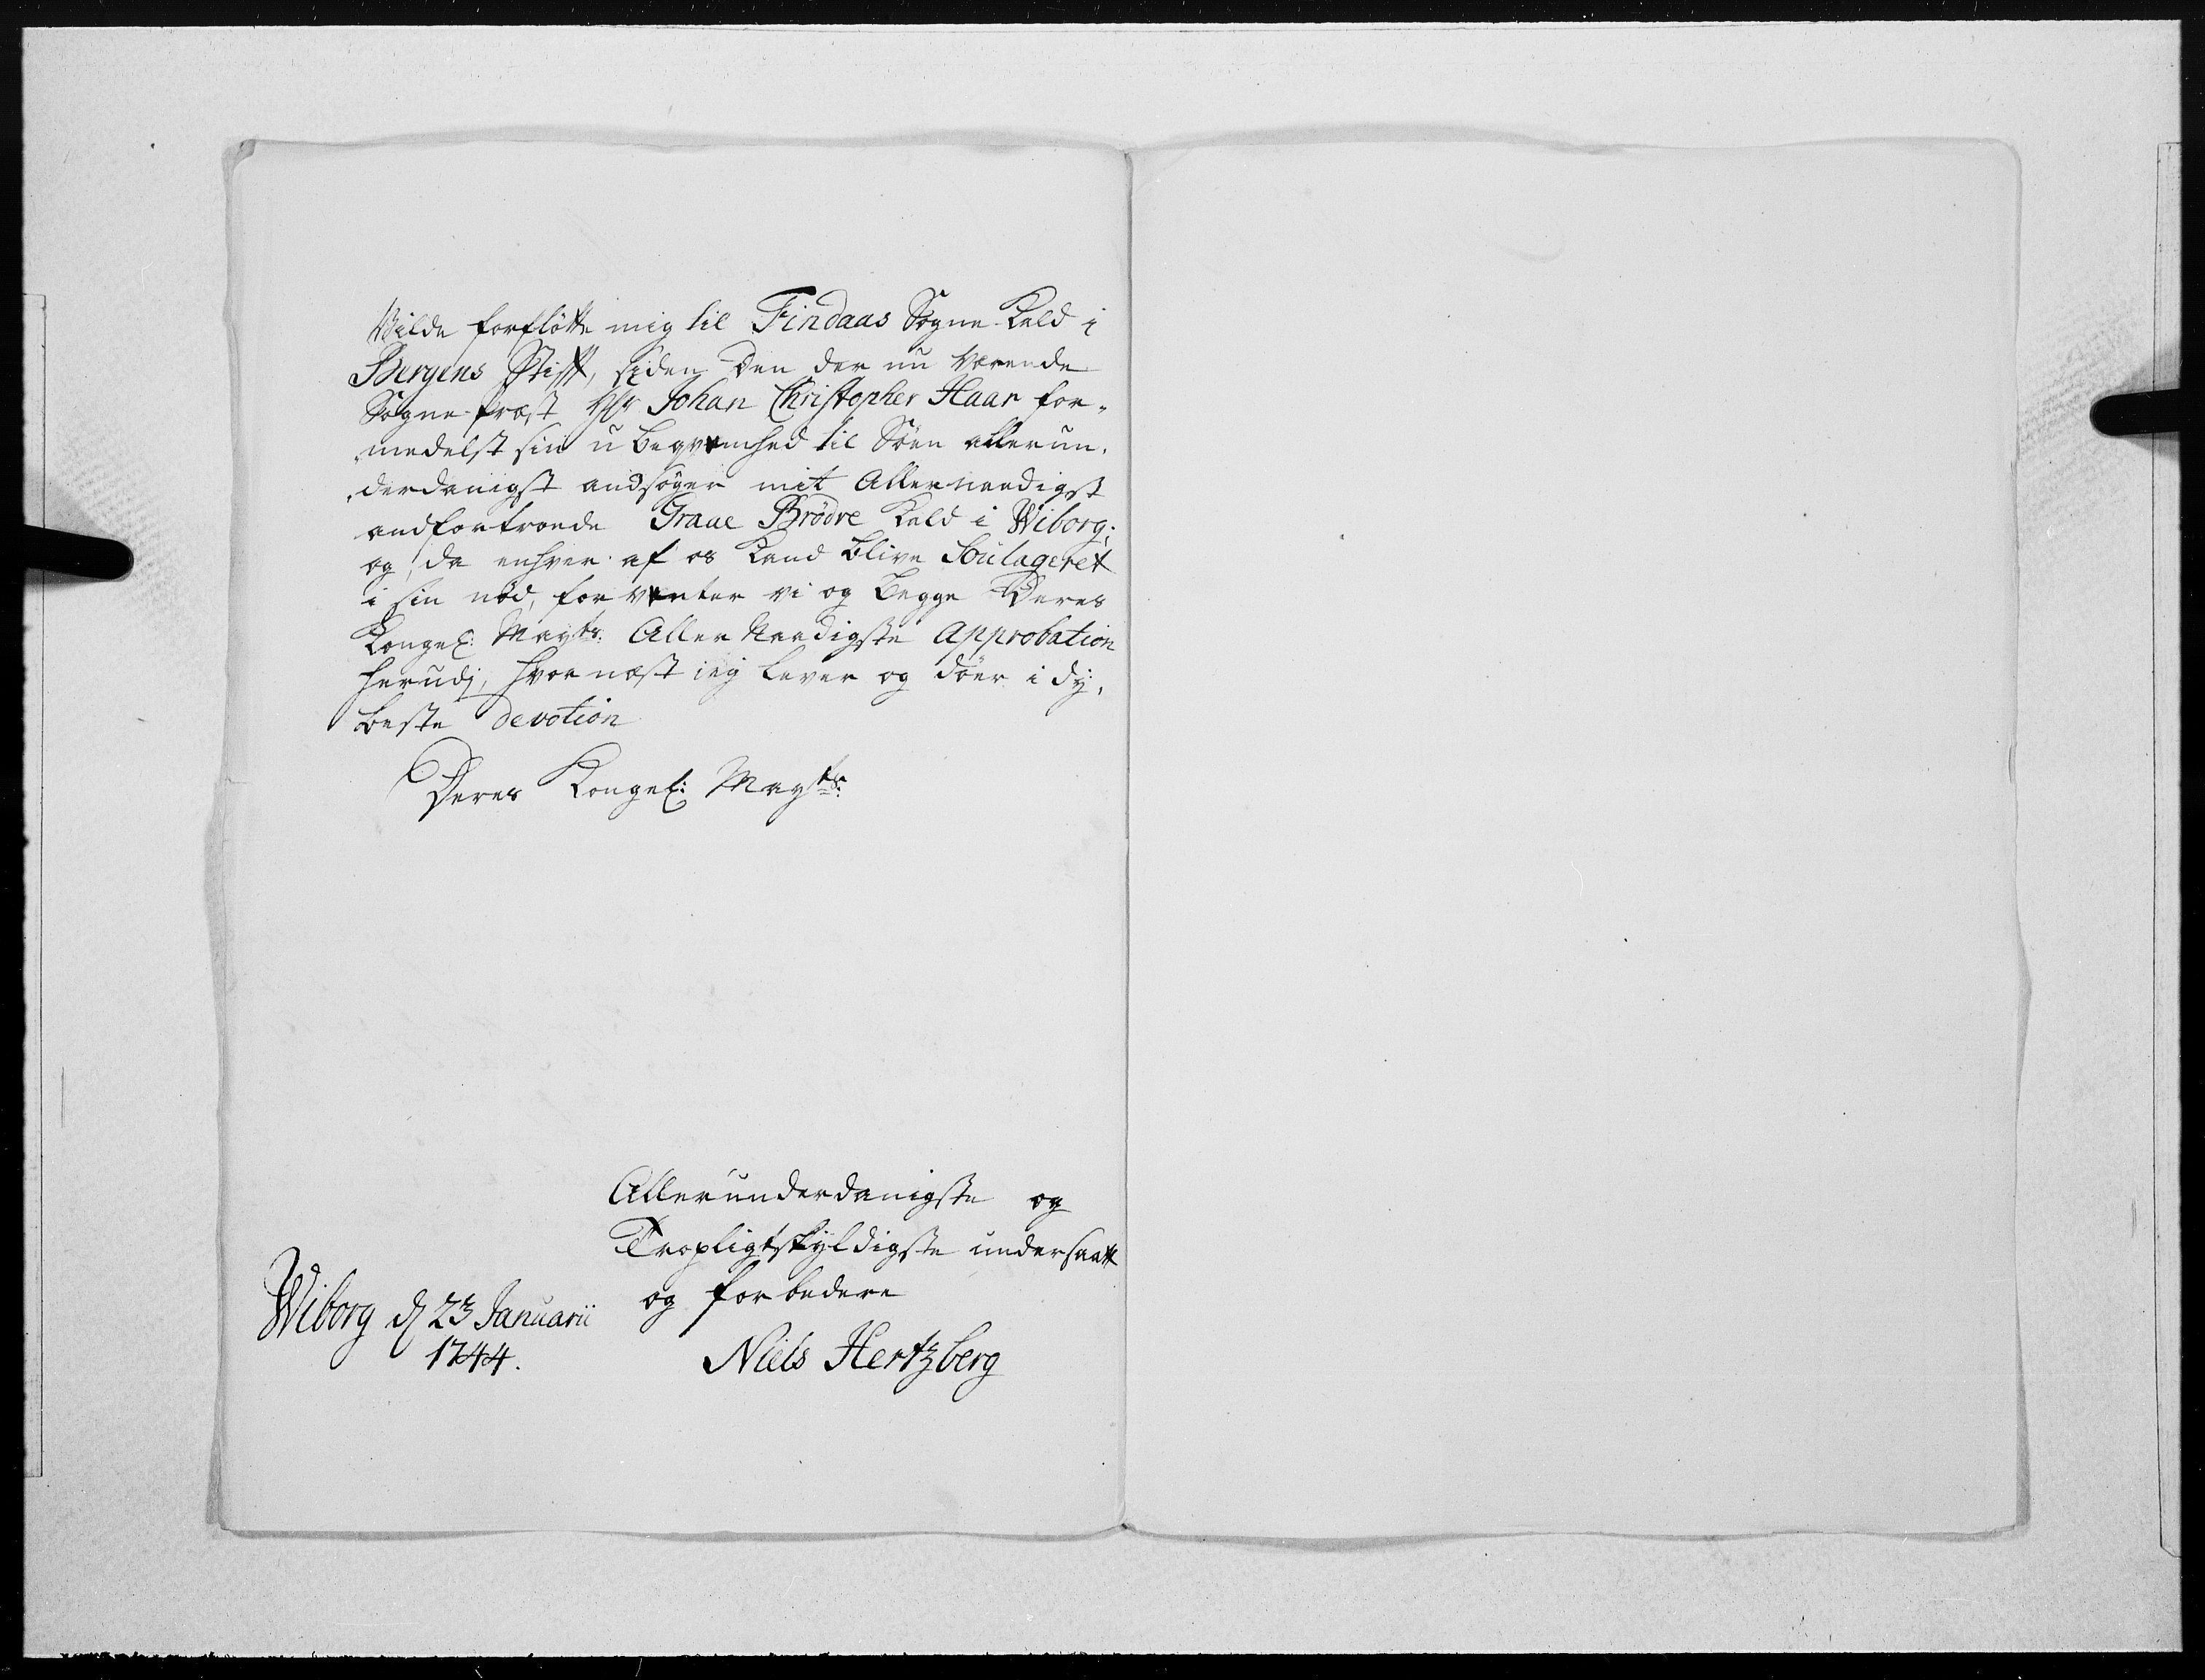 Vilde forflötte mig til Findaas Sogne-Kald i
Bergens Stift, siden den der nu værende
Sogne-Præst Hr Johan Christopher Haar for-
medelst sin u beqvemhed til Söen allerun-
derdanigst andsøger mit Allernaadigst
andfortroede Graae Brödre Kald i Wiborg;
og, da enhver af os Kand blive Soulageret
i sin nöd, forventer vi og begge Deres
Kongel: Mayts: Aller Naadigste Approbation
herudj, hvor næst ieg lever og döer i dÿ-
beste devotion
Deres Kongel: Mayts:
Allerunderdanigste og
Tropligtskyldigste undersaatt
og forbedere
Wiborg d 23 Januarii
1744.
Niels Hertzberg